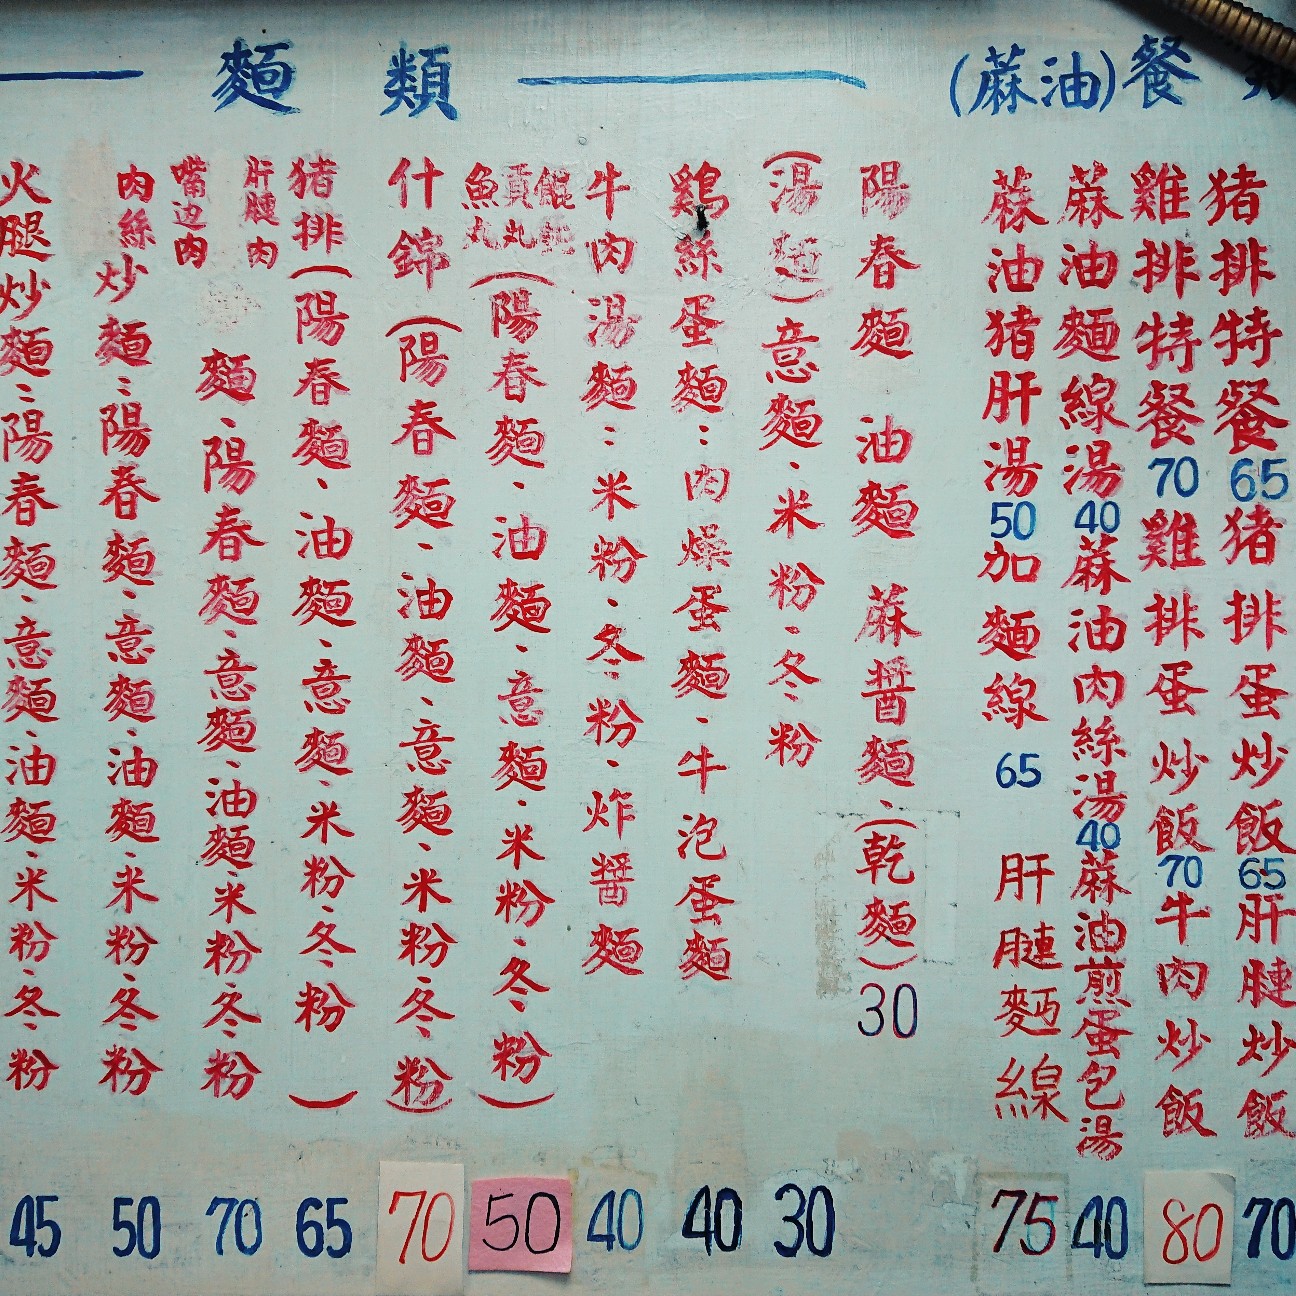 (蔴油)餐
猪排特餐 65 猪排蛋炒飯 65 肝腱炒飯 70
雞排特餐 70 雞排蛋炒飯 70 牛肉炒飯 80
蔴油麵線湯 40 蔴油肉絲湯 40 蔴油煎蛋包湯 40
蔴油猪肝湯 50 加麵線 65 肝腱麵線 75
麵類
陽春麵 油麵 蔴醬麵、(乾麵) 30
(湯麵)意麵、米粉、冬粉 30
鷄絲蛋麵：肉燥蛋麵、牛泡蛋麵 40
牛肉湯麵：米粉、冬粉、炸醬麵 40
餛飩 貢丸 魚丸(陽春麵、油麵、意麵、米粉、冬粉) 50
什錦(陽春麵、油麵、意麵、米粉、冬粉) 70
猪排(陽春麵、油麵、意麵、米粉、冬粉) 65
肝腱肉 嘴边肉 麵、陽春麵、意麵、油麵、米粉、冬粉 70
肉絲炒麵：陽春麵、意麵、油麵、米粉、冬粉 50
火腿炒麵：陽春麵、意麵、油麵、米粉、冬粉 45